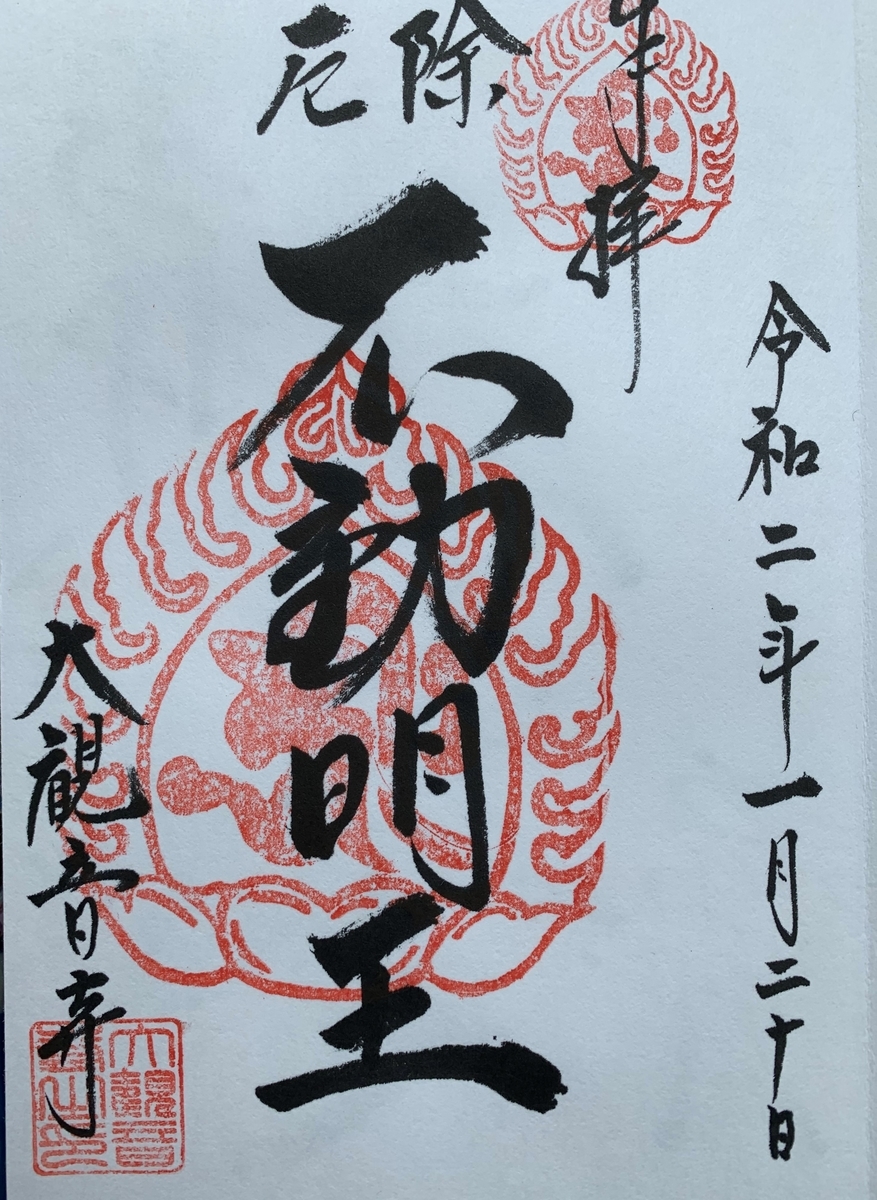 奉拝
令和二年一月二十日
厄除
不動明王
大観音寺